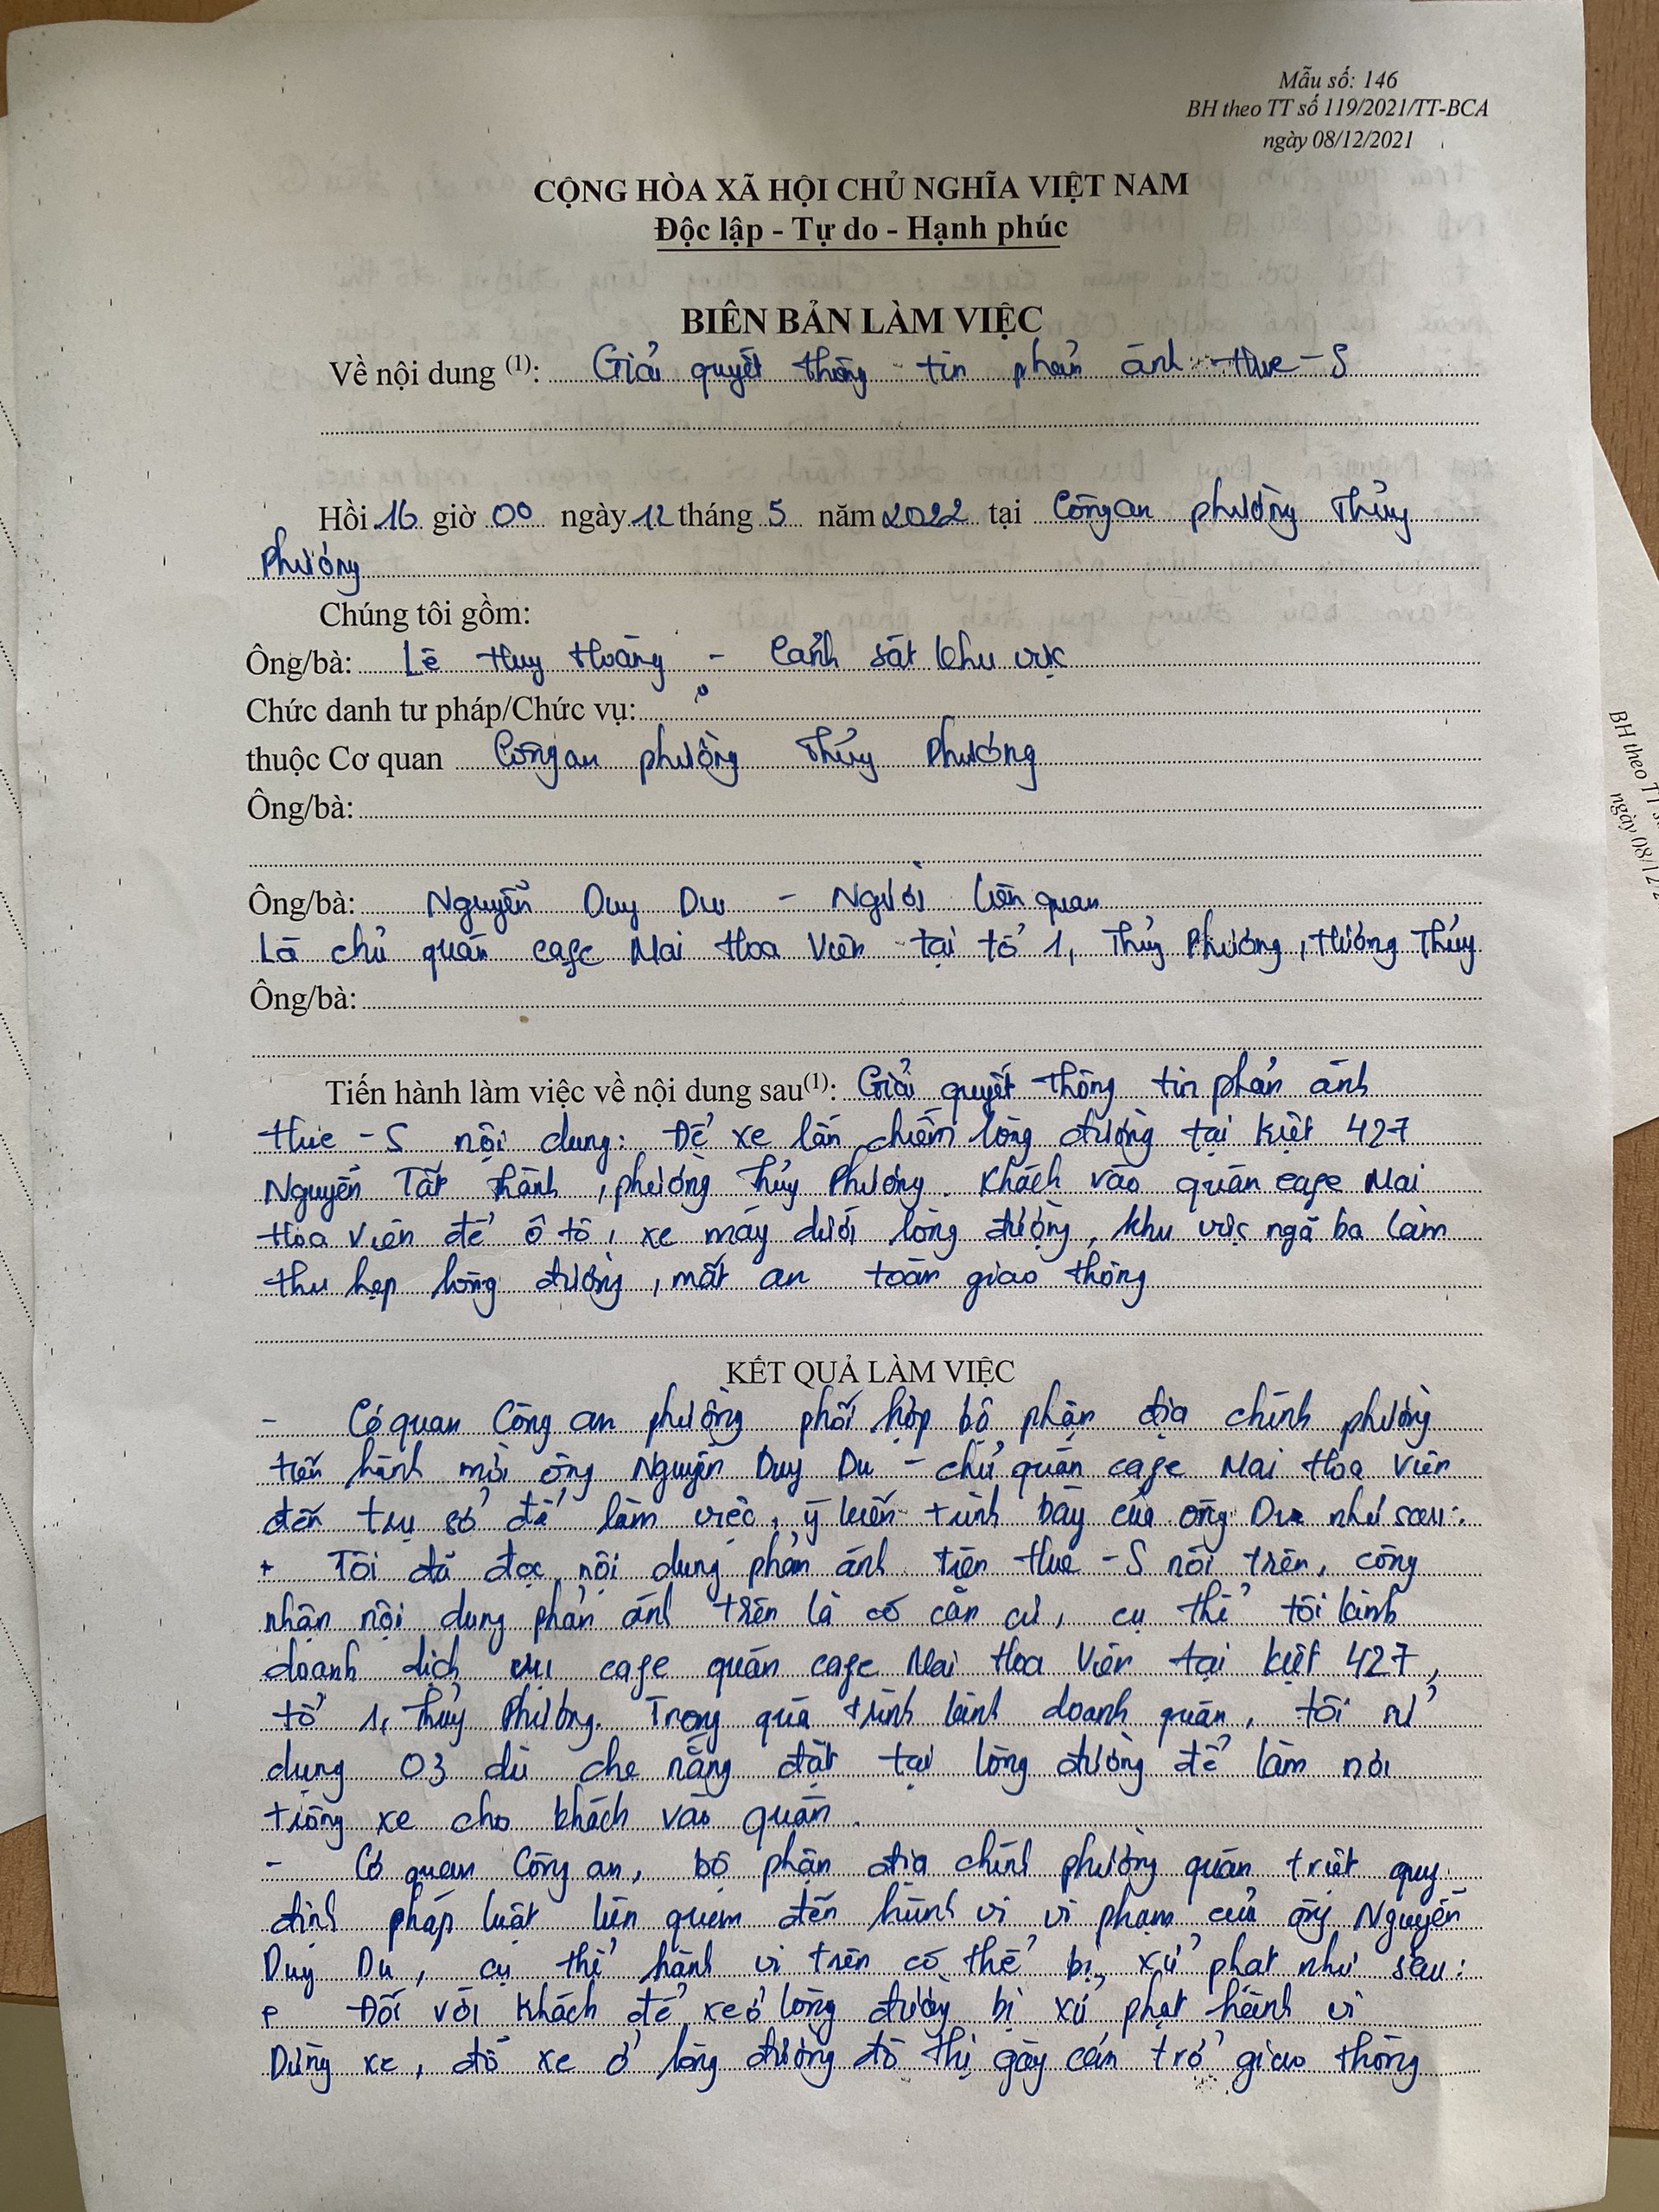 Mẫu số: 146
BH theo TT số 119/2021/TT-BCA
ngày 08/12/2021
CỘNG HÒA XÃ HỘI CHỦ NGHĨA VIỆT NAM
Độc lập - Tự do - Hạnh phúc
BIÊN BẢN LÀM VIỆC
Về nội dung (1): Giải quyết thông tin phản ánh Hue-S
Hồi 16 giờ 00 ngày 12 tháng 5 năm 2022 tại Công an phường Thủy
Phương
Chúng tôi gồm:
Ông/bà: Lê Huy Hoàng - Cảnh sát khu vực
Chức danh tư pháp/Chức vụ:
thuộc Cơ quan Công an phường Thủy Phương
Ông/bà:
Ông/bà: Nguyễn Duy Du - Người liên quan
Là chủ quán cafe Mai Hoa Viên tại tổ 1, Thủy Phương, Hương Thủy
Ông/bà:
Tiến hành làm việc về nội dung sau(1): Giải quyết thông tin phản ánh
Hue-S nội dung: Để xe lấn chiếm lòng đường tại kiệt 427
Nguyễn Tất Thành, phường Thủy Phương. Khách vào quán cafe Mai
Hoa Viên để ô tô, xe máy dưới lòng đường, khu vực ngã ba làm
thu hẹp lòng đường, mất an toàn giao thông
KẾT QUẢ LÀM VIỆC
- Cơ quan Công an phường phối hợp bộ phận địa chính phường
tiến hành mời ông Nguyễn Duy Du - chủ quán cafe Mai Hoa Viên
đến trụ sở để làm việc, ý kiến trình bày của ông Du như sau:
+ Tôi đã đọc nội dung phản ánh trên Hue-S nói trên, công
nhận nội dung phản ánh trên là có căn cứ, cụ thể tôi kinh
doanh dịch vụ cafe quán cafe Mai Hoa Viên tại kiệt 427,
tổ 1, Thủy Phương. Trong quá trình kinh doanh quán, tôi sử
dụng 03 dù che nắng đặt tại lòng đường để làm nơi
trông xe cho khách vào quán.
- Cơ quan Công an, bộ phận địa chính phường quán triệt quy
định pháp luật liên quan đến hành vi vi phạm của ông Nguyễn
Duy Du, cụ thể hành vi trên có thể bị xử phạt như sau:
+ Đối với khách để xe ở lòng đường bị xử phạt hành vi
Dừng xe, đỗ xe ở lòng đường đô thị gây cản trở giao thông
BH theo TT s
ngày 08/12/2